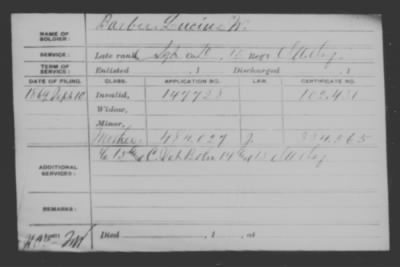 NAME OF SOLDIER: Barber, Lucius W.
SERVICE: Late rank Co. 15 Reg't Ills Inf.
TERM OF SERVICE: Enlisted , 1 Discharged , 1
DATE OF FILING. CLASS. APPLICATION NO. LAW. CERTIFICATE NO.
1864 Sept 10 Invalid, 147728 102,431
Widow,
Minor,
Mother 484,027 J. 334,265
ADDITIONAL SERVICES:
REMARKS:
Died , 1 , at